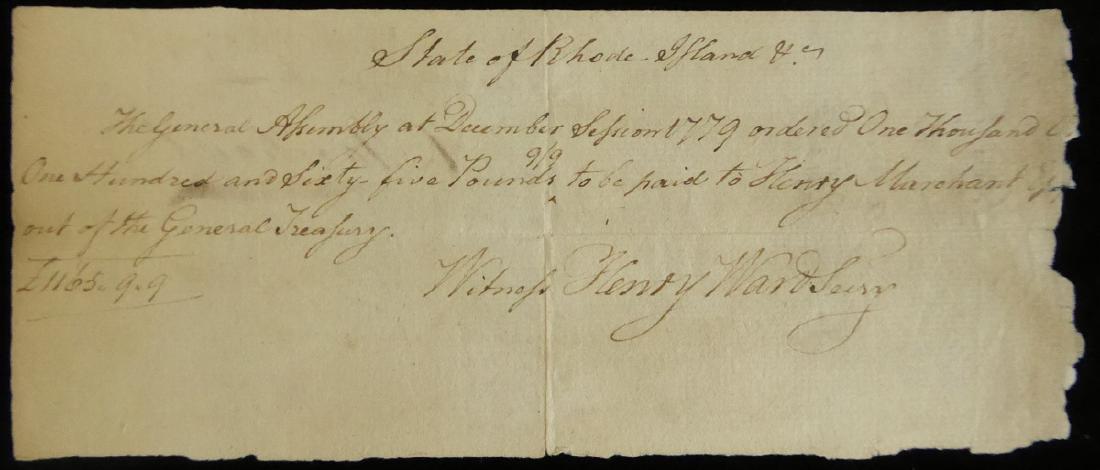 State of Rhode-Island &c.
The General Assembly at December Session 1779 ordered One Thousand
One Hundred and Sixty-five Pounds 9/9 to be paid to Henry Marchant Esq
out of the General Treasury.
£1165.9.9
Witness Henry Ward Secry